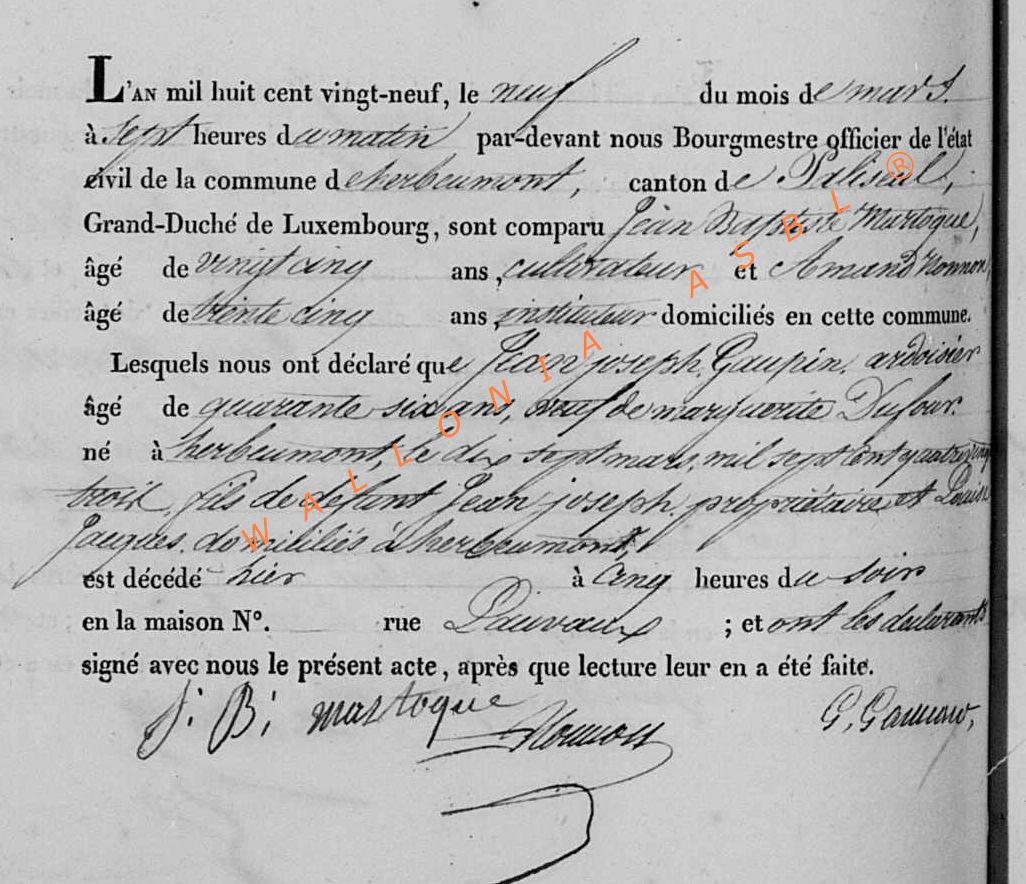 L'AN mil huit cent vingt-neuf, le neuf du mois de mars.
à sept heures du matin par-devant nous Bourgmestre officier de l'état
civil de la commune de herbeumont, canton de Paliseul,
Grand-Duché de Luxembourg, sont comparu Jean Baptiste Martoque,
âgé de vingt cinq ans, cultivateur et Amand Nonnon,
âgé de trente cinq ans, instituteur domiciliés en cette commune.
Lesquels nous ont déclaré que Jean joseph Gaupin, ardoisier
âgé de quarante six ans, veuf de marguerite Dufour.
né à herbeumont, le dix sept mars, mil sept cent quatre vingt
trois, fils de défunt Jean joseph, propriétaire et Louise
Jacques, domiciliés à herbeumont,
est décédé hier à cinq heures du soir
en la maison N°. rue Lauvaux ; et ont les déclarants
signé avec nous le présent acte, après que lecture leur en a été faite.
J. B. martoque Nonnon G.
WALLONIA ASBL ®